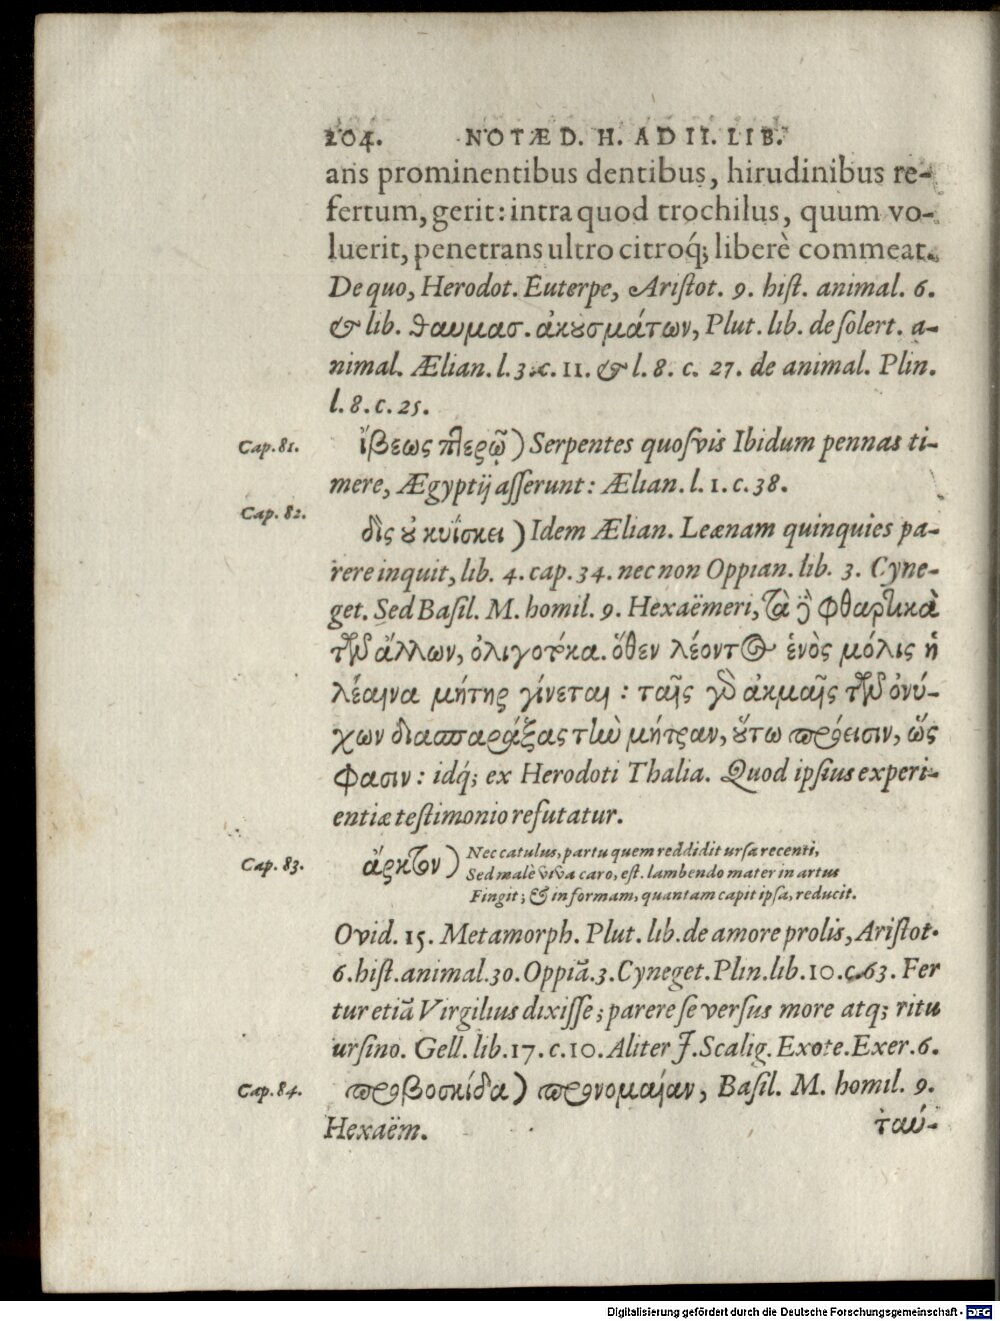 204. NOTÆ D. H. AD II. LIB.
ans prominentibus dentibus, hirudinibus re-
fertum, gerit: intra quod trochilus, quum vo-
luerit, penetrans ultro citroq́; liberè commeat.
De quo, Herodot. Euterpe, Aristot. 9. hist. animal. 6.
& lib. θαυμασ. ἀκουσμάτων, Plut. lib. de solert. a-
nimal. Ælian. l. 3. c. 11. & l. 8. c. 27. de animal. Plin.
l. 8. c. 25.
Cap. 81. ἴβεως πτερῷ) Serpentes quosvis Ibidum pennas ti-
mere, Ægyptij asserunt: Ælian. l. 1. c. 38.
Cap. 82. δὶς οὐ κυΐσκει) Idem Ælian. Leænam quinquies pa-
rere inquit, lib. 4. cap. 34. nec non Oppian. lib. 3. Cyne-
get. Sed Basil. M. homil. 9. Hexaëmeri, τὰ δὲ φθαρτικὰ
τῶν ἄλλων, ὀλιγοτόκα. ὅθεν λέοντος ἑνὸς μόλις ἡ
λέαινα μήτηρ γίνεται: ταῖς γὰρ ἀκμαῖς τῶν ὀνύ-
χων διασπαράξας τὴν μήτραν, οὕτω πρόεισιν, ὥς
φασιν: idq́; ex Herodoti Thalia. Quod ipsius experi-
entiæ testimonio refutatur.
Cap. 83. ἄρκτον) Nec catulus, partu quem reddidit ursa recenti,
Sed malè viva caro, est. lambendo mater in artus
Fingit; & in formam, quantam capit ipsa, reducit.
Ovid. 15. Metamorph. Plut. lib. de amore prolis, Aristot.
6. hist. animal. 30. Oppiã. 3. Cyneget. Plin. lib. 10. c. 63. Fer
tur etiã Virgilius dixisse; parere se versus more atq; ritu
ursino. Gell. lib. 17. c. 10. Aliter J. Scalig. Exote. Exer. 6.
Cap. 84. προβοσκίδα) προνομαίαν, Basil. M. homil. 9.
Hexaëm.
ταύ-
Digitalisierung gefördert durch die Deutsche Forschungsgemeinschaft - DFG